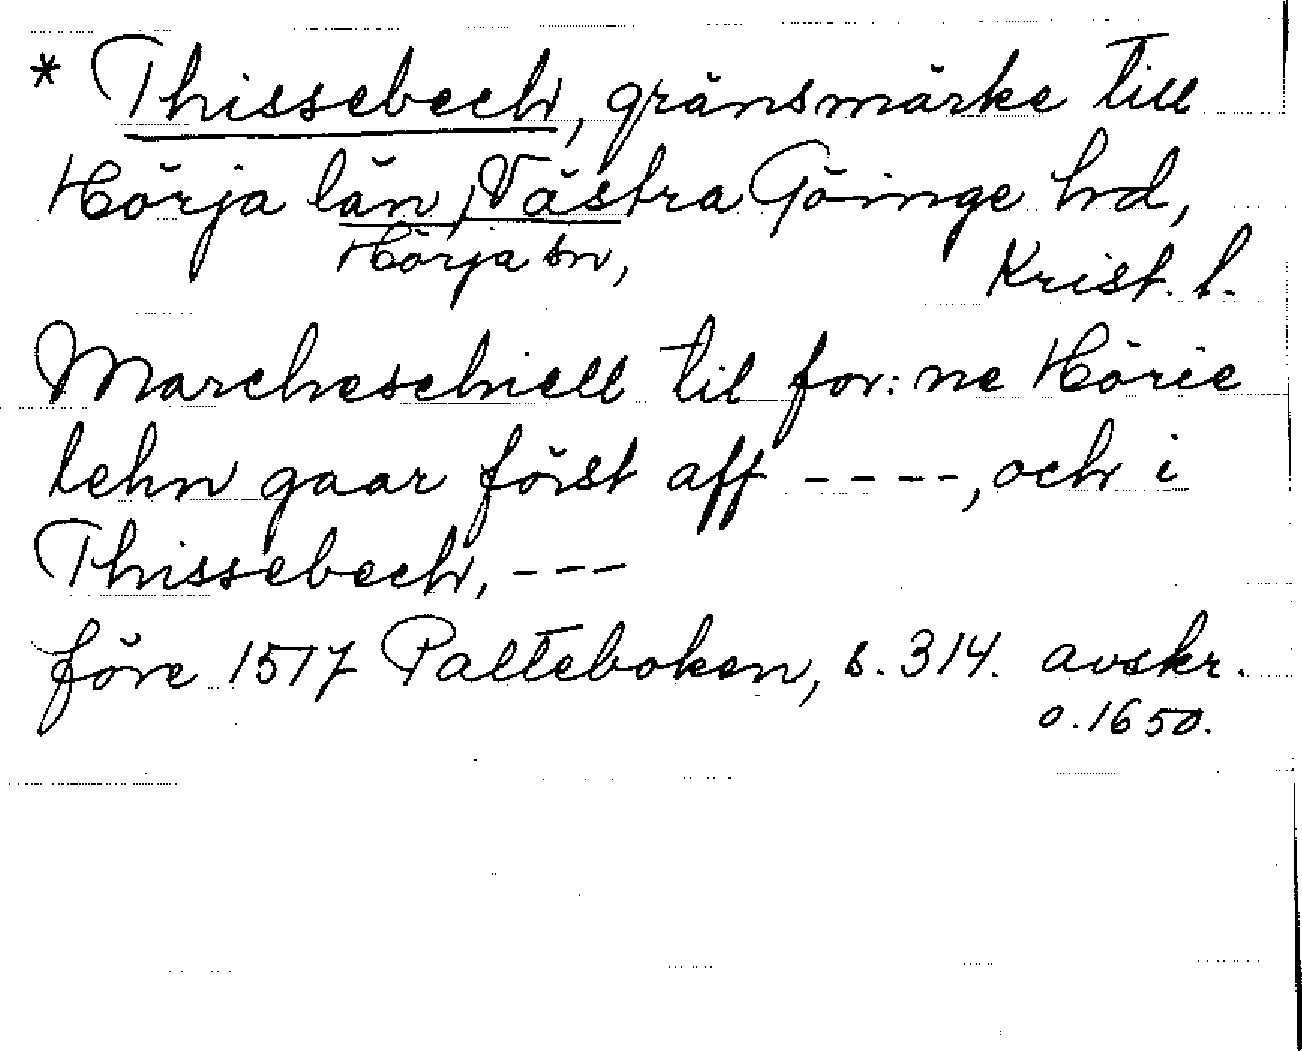 * Thissebech, gränsmärke till
Hörja län, Västra Göinge hd,
Hörja sn,
Krist. l.
Marcheschiell til for:ne Hörie
lehn gaar först aff ----, och i
Thissebech, ---
före 1517 Palteboken, s. 314. avskr.
o. 1650.